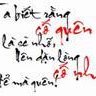 Ta biết rằng
cố quên
là sẽ nhớ,
nên dặn lòng
cố nh
để mà quên